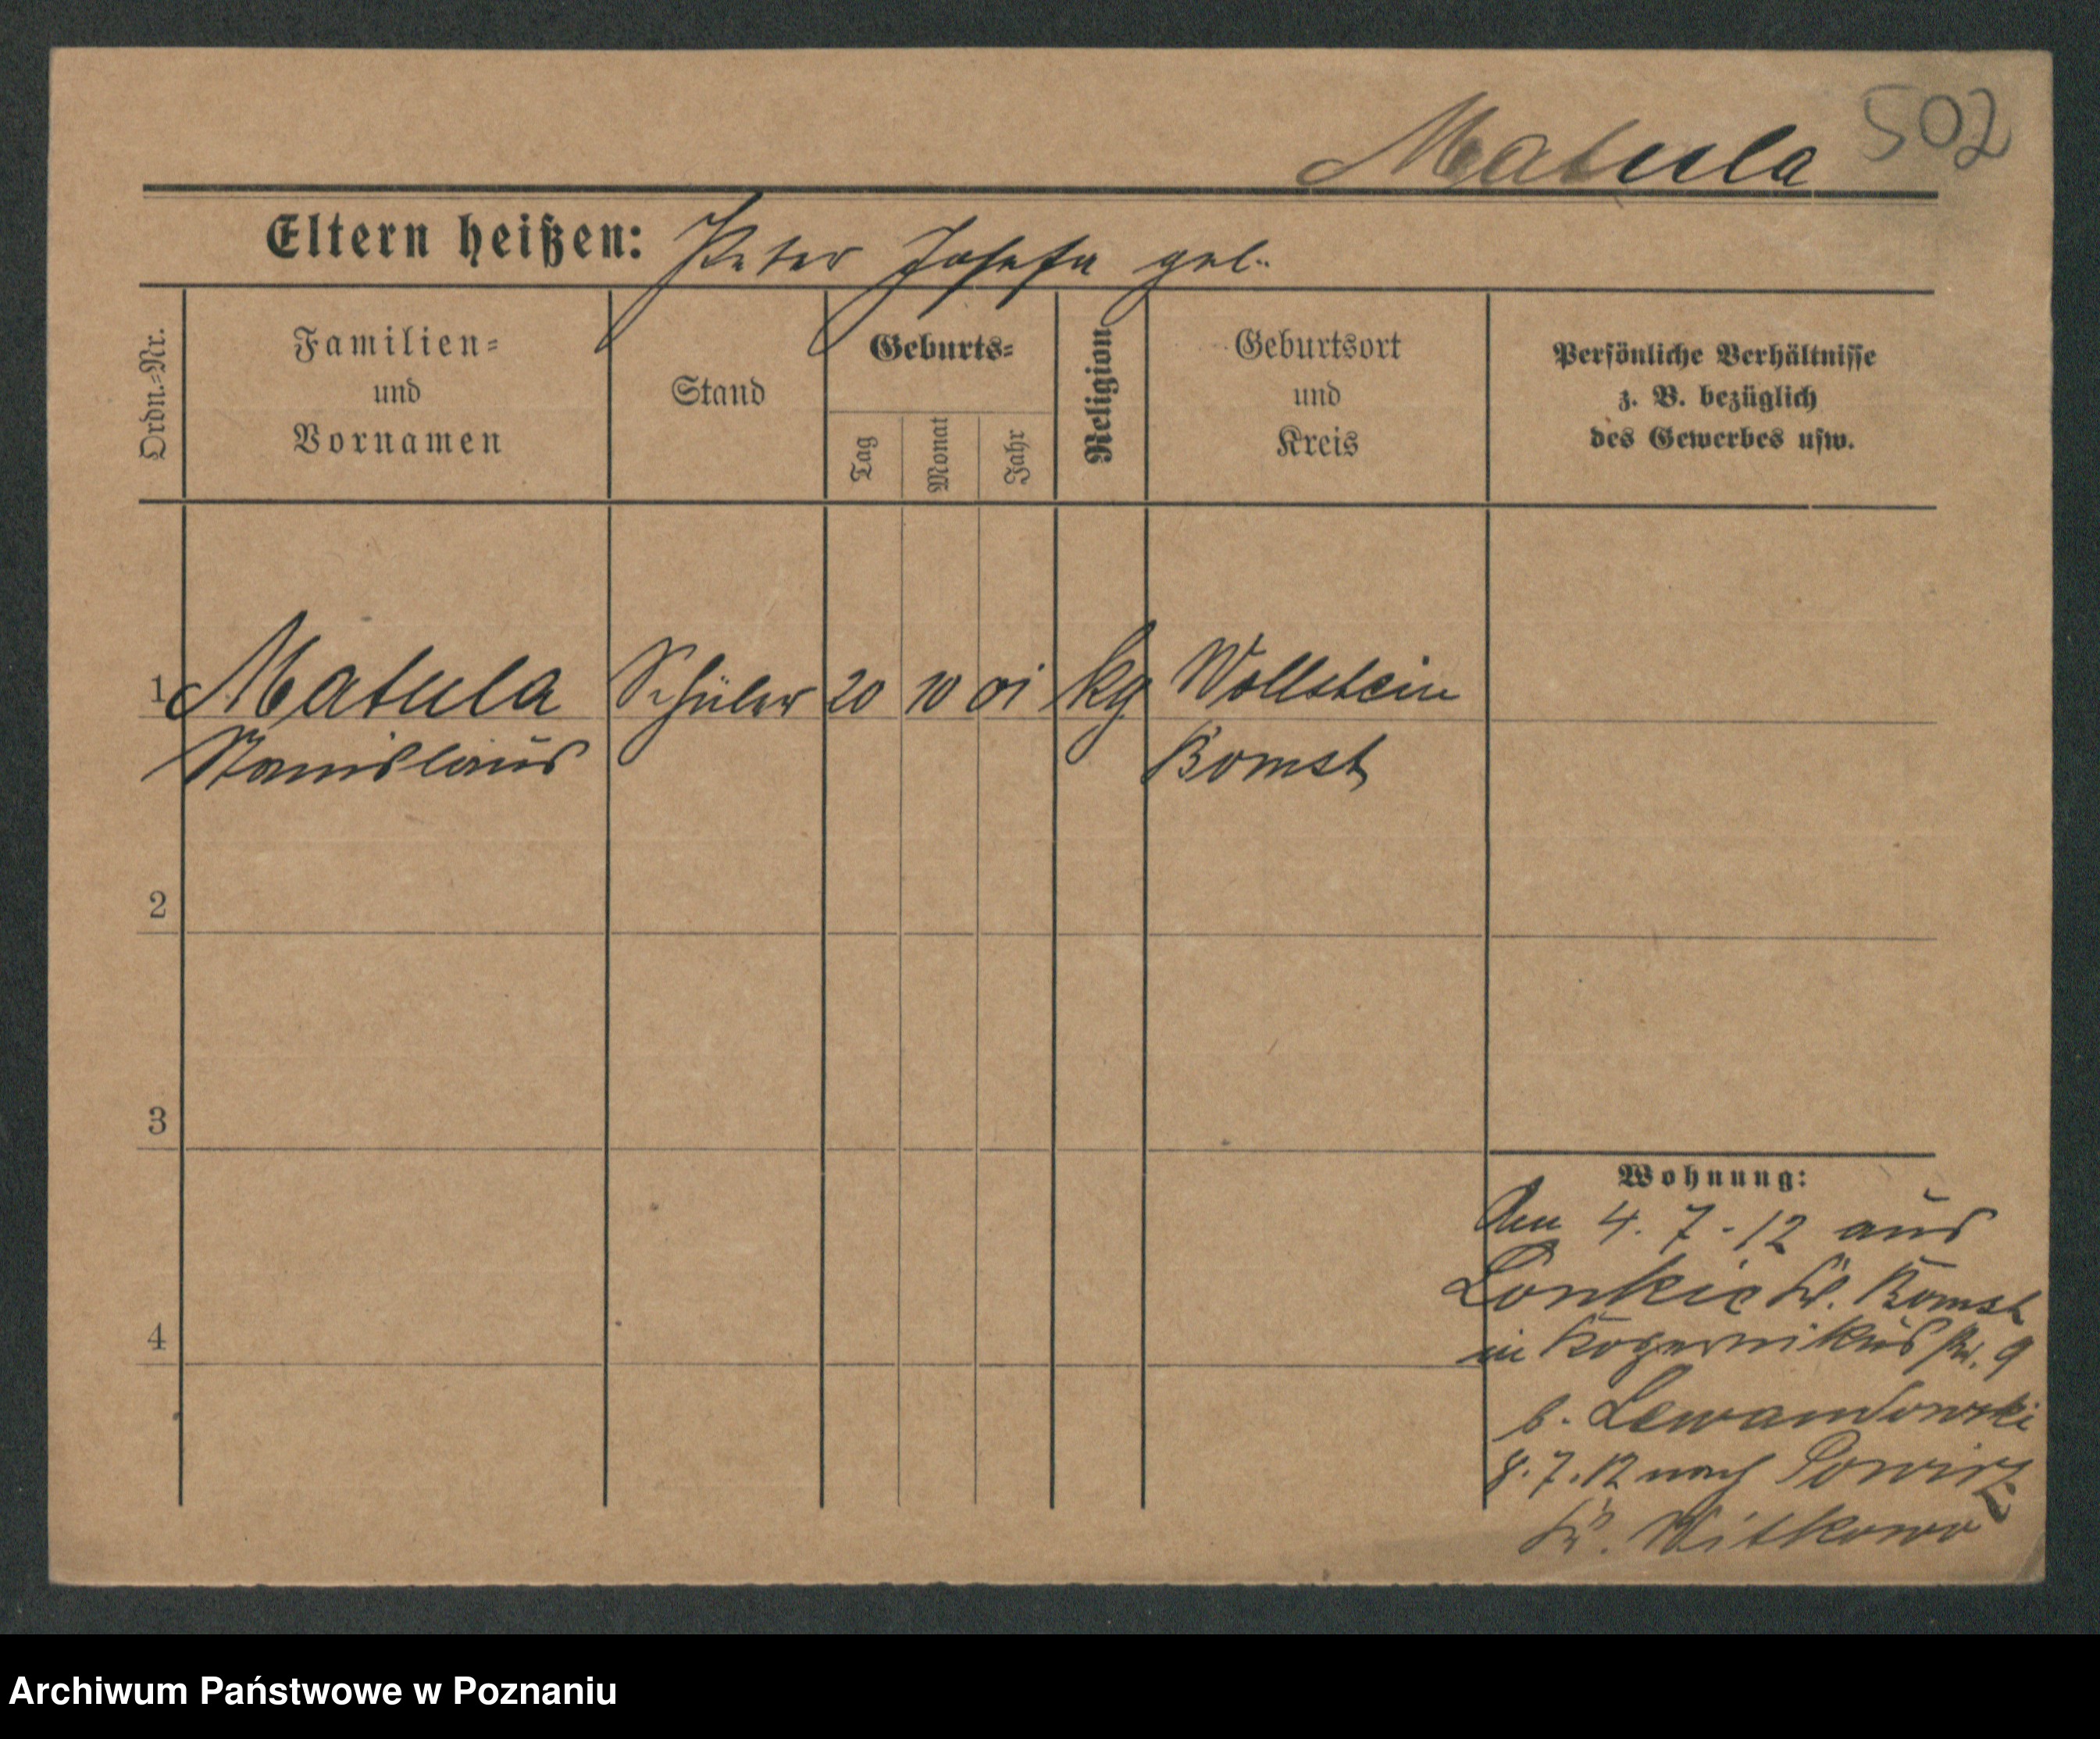 Matula 502
Eltern heißen: Peter Josefa
Ordn.-Nr.
Familien-
und
Vornamen
Stand
Geburts-
Tag
Monat
Jahr
Religion
Geburtsort
und
Kreis
Persönliche Verhältnisse
z. B. bezüglich
des Gewerbes usw.
1 Matula Schüler 20 10 01 kg Wollstein
Stanislaus Bomst
2
3
4
Wohnung:
Am 4. 7. 12 aus
Lonkie Kr. Bomst
in Kopernikusstr. 9
b. Lewandowski
8. 7. 12 nach Powidz
Kr. Witkowo
Archiwum Państwowe w Poznaniu